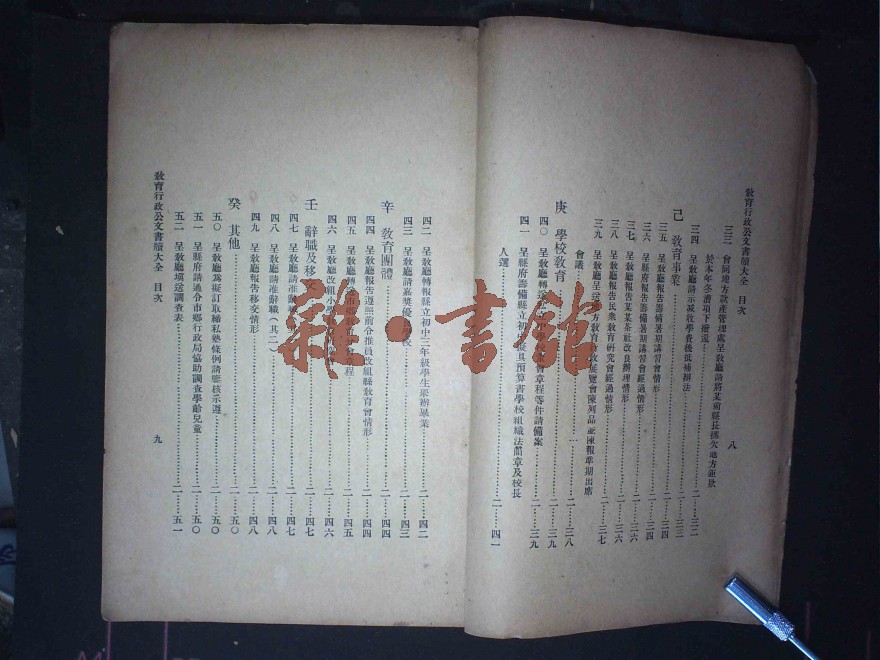 教育行政公文書牘大全 目次
八
三三 會同地方款產管理處呈教廳請將某前縣長挪欠地方
於本年冬漕項下撥還
三四 呈教廳請示減收學費後低補辦法…二…三二
己 教育事業…二…三三
三五 呈教廳報告籌備暑期講習會情形…二…三四
三六 呈縣府報告籌備暑期講習會經過情形…二…三四
三七 呈教廳報告某某茶社改良辦理情形…二…三六
三八 呈教廳報告民衆教育研究會經過情形…二…三六
三九 呈教廳呈送 方教育 展覽會陳列品並陳報準期出席
會議…二…三七
庚 學校教育…二…三八
四〇 呈教廳轉送 會章程等件請備案…二…三九
四一 呈縣府籌備縣立初 具預算書學校組織法 章及校長
人選…二…四一
四二 呈教廳轉報縣立初中三年級學生 辦畢業…二…四二
四三 呈教廳請嘉獎優 校…二…四三
辛 教育團體…二…四四
四四 呈教廳報告遵照前令推員改組縣教育會情形…二…四四
四五 呈教廳轉 市鄉教育會 程…二…四五
四六 呈教廳改組小學…二…四六
壬 辭職及移交…二…四七
四七 呈教廳請准辭職…二…四七
四八 呈教廳請准辭職（其二）…二…四八
四九 呈教廳報告移交情形…二…四八
癸 其他…二…五〇
五〇 呈教廳爲擬訂取締私塾條例請鑒核示遵…二…五〇
五一 呈縣府請通令市鄉行政局協助調查學齡兒童…二…五〇
五二 呈教廳填送調查表…二…五一
教育行政公文書牘大全 目次
九
雜·書館